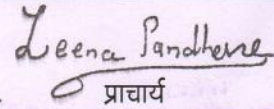 Leena Pandhere
प्राचार्य